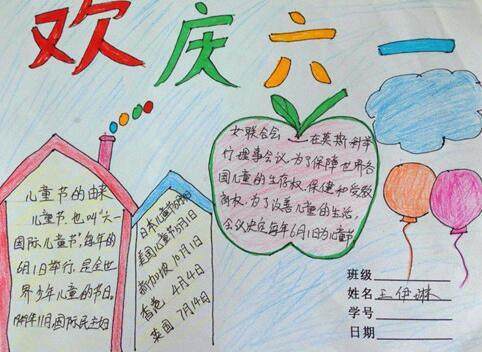 欢庆六一
儿童节的由来
儿童节,也叫"六一
国际儿童节,每年的
6月1日举行,是全世
界少年儿童的节日。
1949年11月国际民主妇
日本儿童节
美国儿童节5月1日
新加坡10月1日
香港 4月4日
英国 7月14日
女联合会 在莫斯科举
行理事会议,为了保障世界各
国儿童的生存权,保健和受教
育权,为了改善儿童的生活,
会议决定每年6月1日为儿童节
班级
姓名 王伊琳
学号
日期